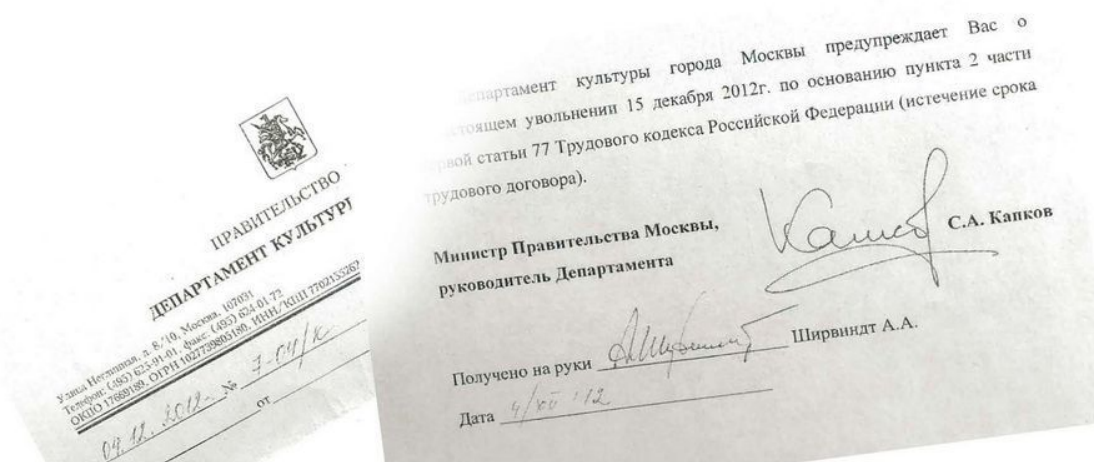 ПРАВИТЕЛЬСТВО
ДЕПАРТАМЕНТ КУЛЬТУРЫ
Улица Неглинная, д. 8/10, Москва, 107031
Телефон: (495) 623-91-01, факс: (495) 624-01-72
ОКПО 17669189, ОГРН 1027739805180, ИНН/КПП 7702155262
04.12.2012г. № 7-04/к
от
епартамент культуры города Москвы предупреждает Вас о
стоящем увольнении 15 декабря 2012г. по основанию пункта 2 части
рвой статьи 77 Трудового кодекса Российской Федерации (истечение срока
трудового договора).
Министр Правительства Москвы,
руководитель Департамента
С.А. Капков
Получено на руки Ширвиндт А.А.
Дата 4/XII '12